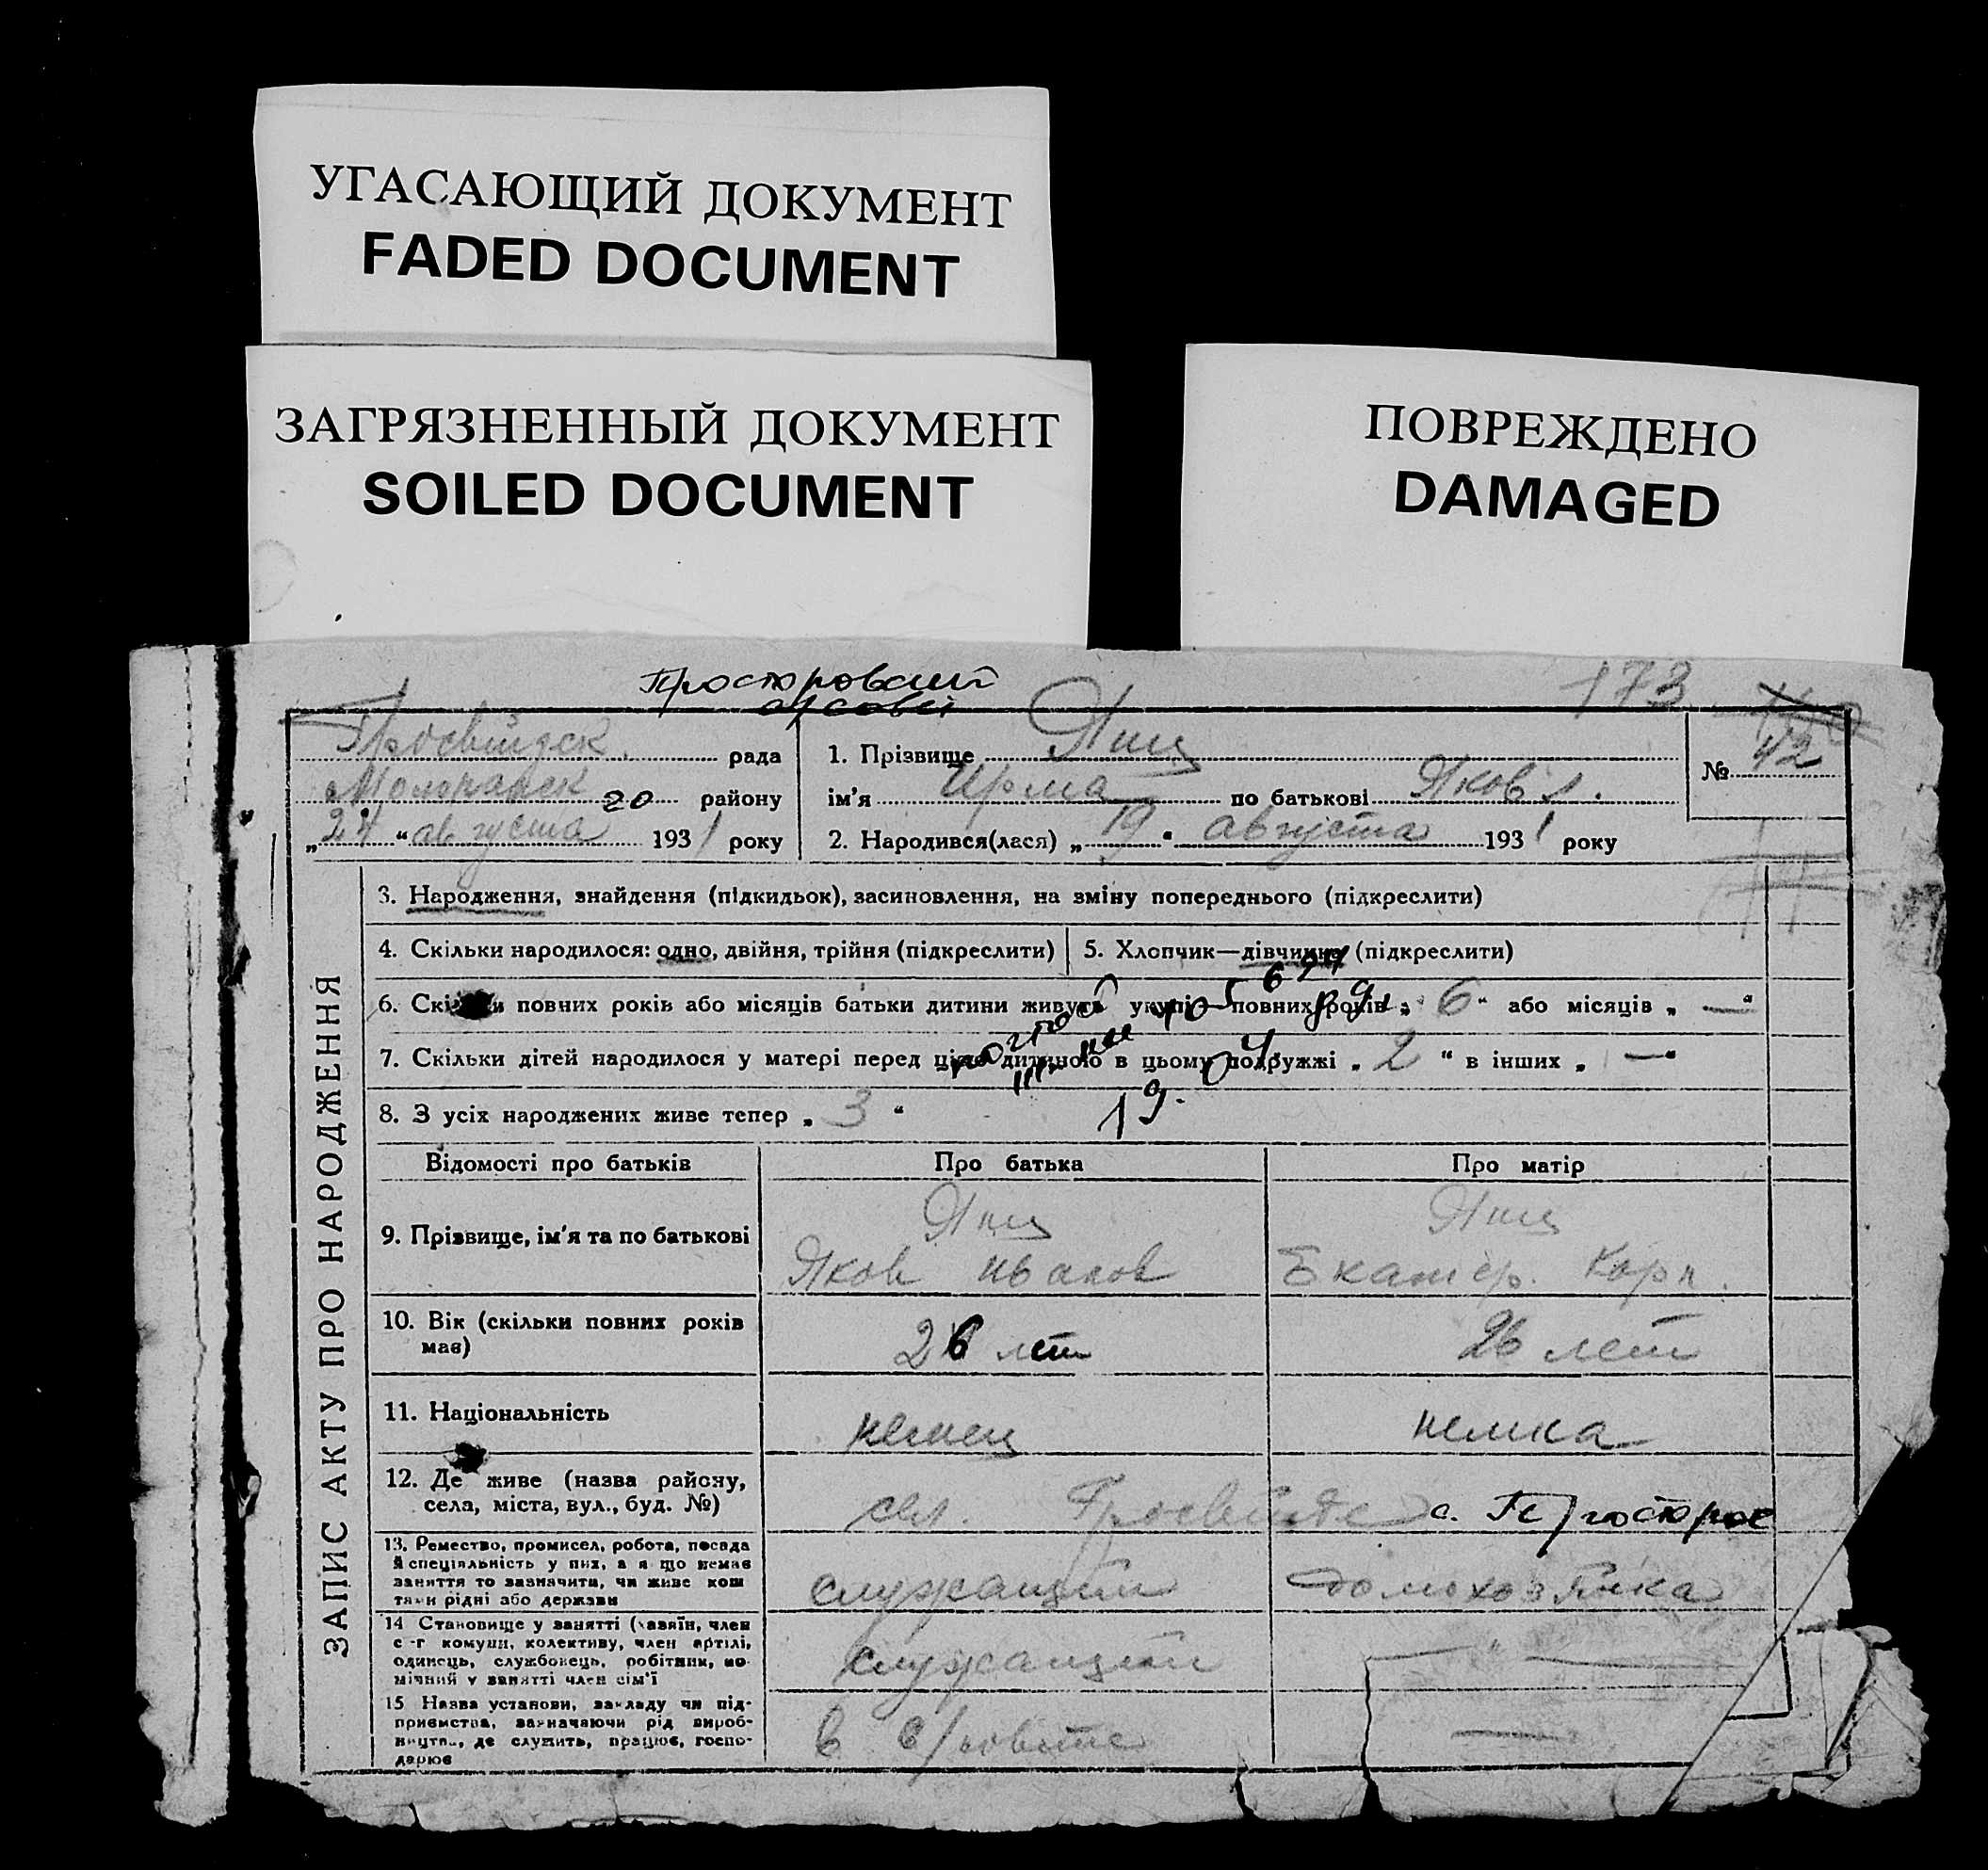 УГАСАЮЩИЙ ДОКУМЕНТ
FADED DOCUMENT
ЗАГРЯЗНЕННЫЙ ДОКУМЕНТ
SOILED DOCUMENT
ПОВРЕЖДЕНО
DAMAGED
173
рада
района
району
„24 “ августа 1931 року
1. Прізвище Янц
ім'я Ирма по батькові Яковл.
2. Народився(лася) „ 19 “ августа 1931 року
№ 42
ЗАПИС АКТУ ПРО НАРОДЖЕННЯ
3. Народження, знайдення (підкидьок), засиновлення, на зміну попереднього (підкреслити)
4. Скільки народилося: одно, двійня, трійня (підкреслити)
5. Хлопчик—дівчинка (підкреслити)
6. Скільки повних років або місяців батьки дитини живуть укупі— повних років „ 6 “ або місяців „ — “
7. Скільки дітей народилося у матері перед цією дитиною в цьому подружжі „ 2 “ в інших „ — “
8. З усіх народжених живе тепер „ 3 “
19
Відомості про батьків
Про батька
Про матір
9. Прізвище, ім'я та по батькові
Янц
Яков Иванов
Янц
Екатер. Корн.
10. Вік (скільки повних років
має)
26 лет
26 лет
11. Національність
немец
немка
12. Де живе (назва району,
села, міста, вул., буд. №)
сел.
с.
13. Ремество, промисел, робота, посада
й спеціяльність у них, а якщо немає
заняття то зазначити, чи живе кош
тами рідні або держави
служащий
домохозяйка
14 Становище у занятті (хазяїн, член
с-г комуни, колективу, член артілі,
одинець, службовець, робітник, по-
мічний у занятті член сім'ї
служащий
— " —
15 Назва установи, закладу чи під-
приємства, зазначаючи рід вироб-
ництва, де служить, працює, госпо-
дарює
в с/совете
—